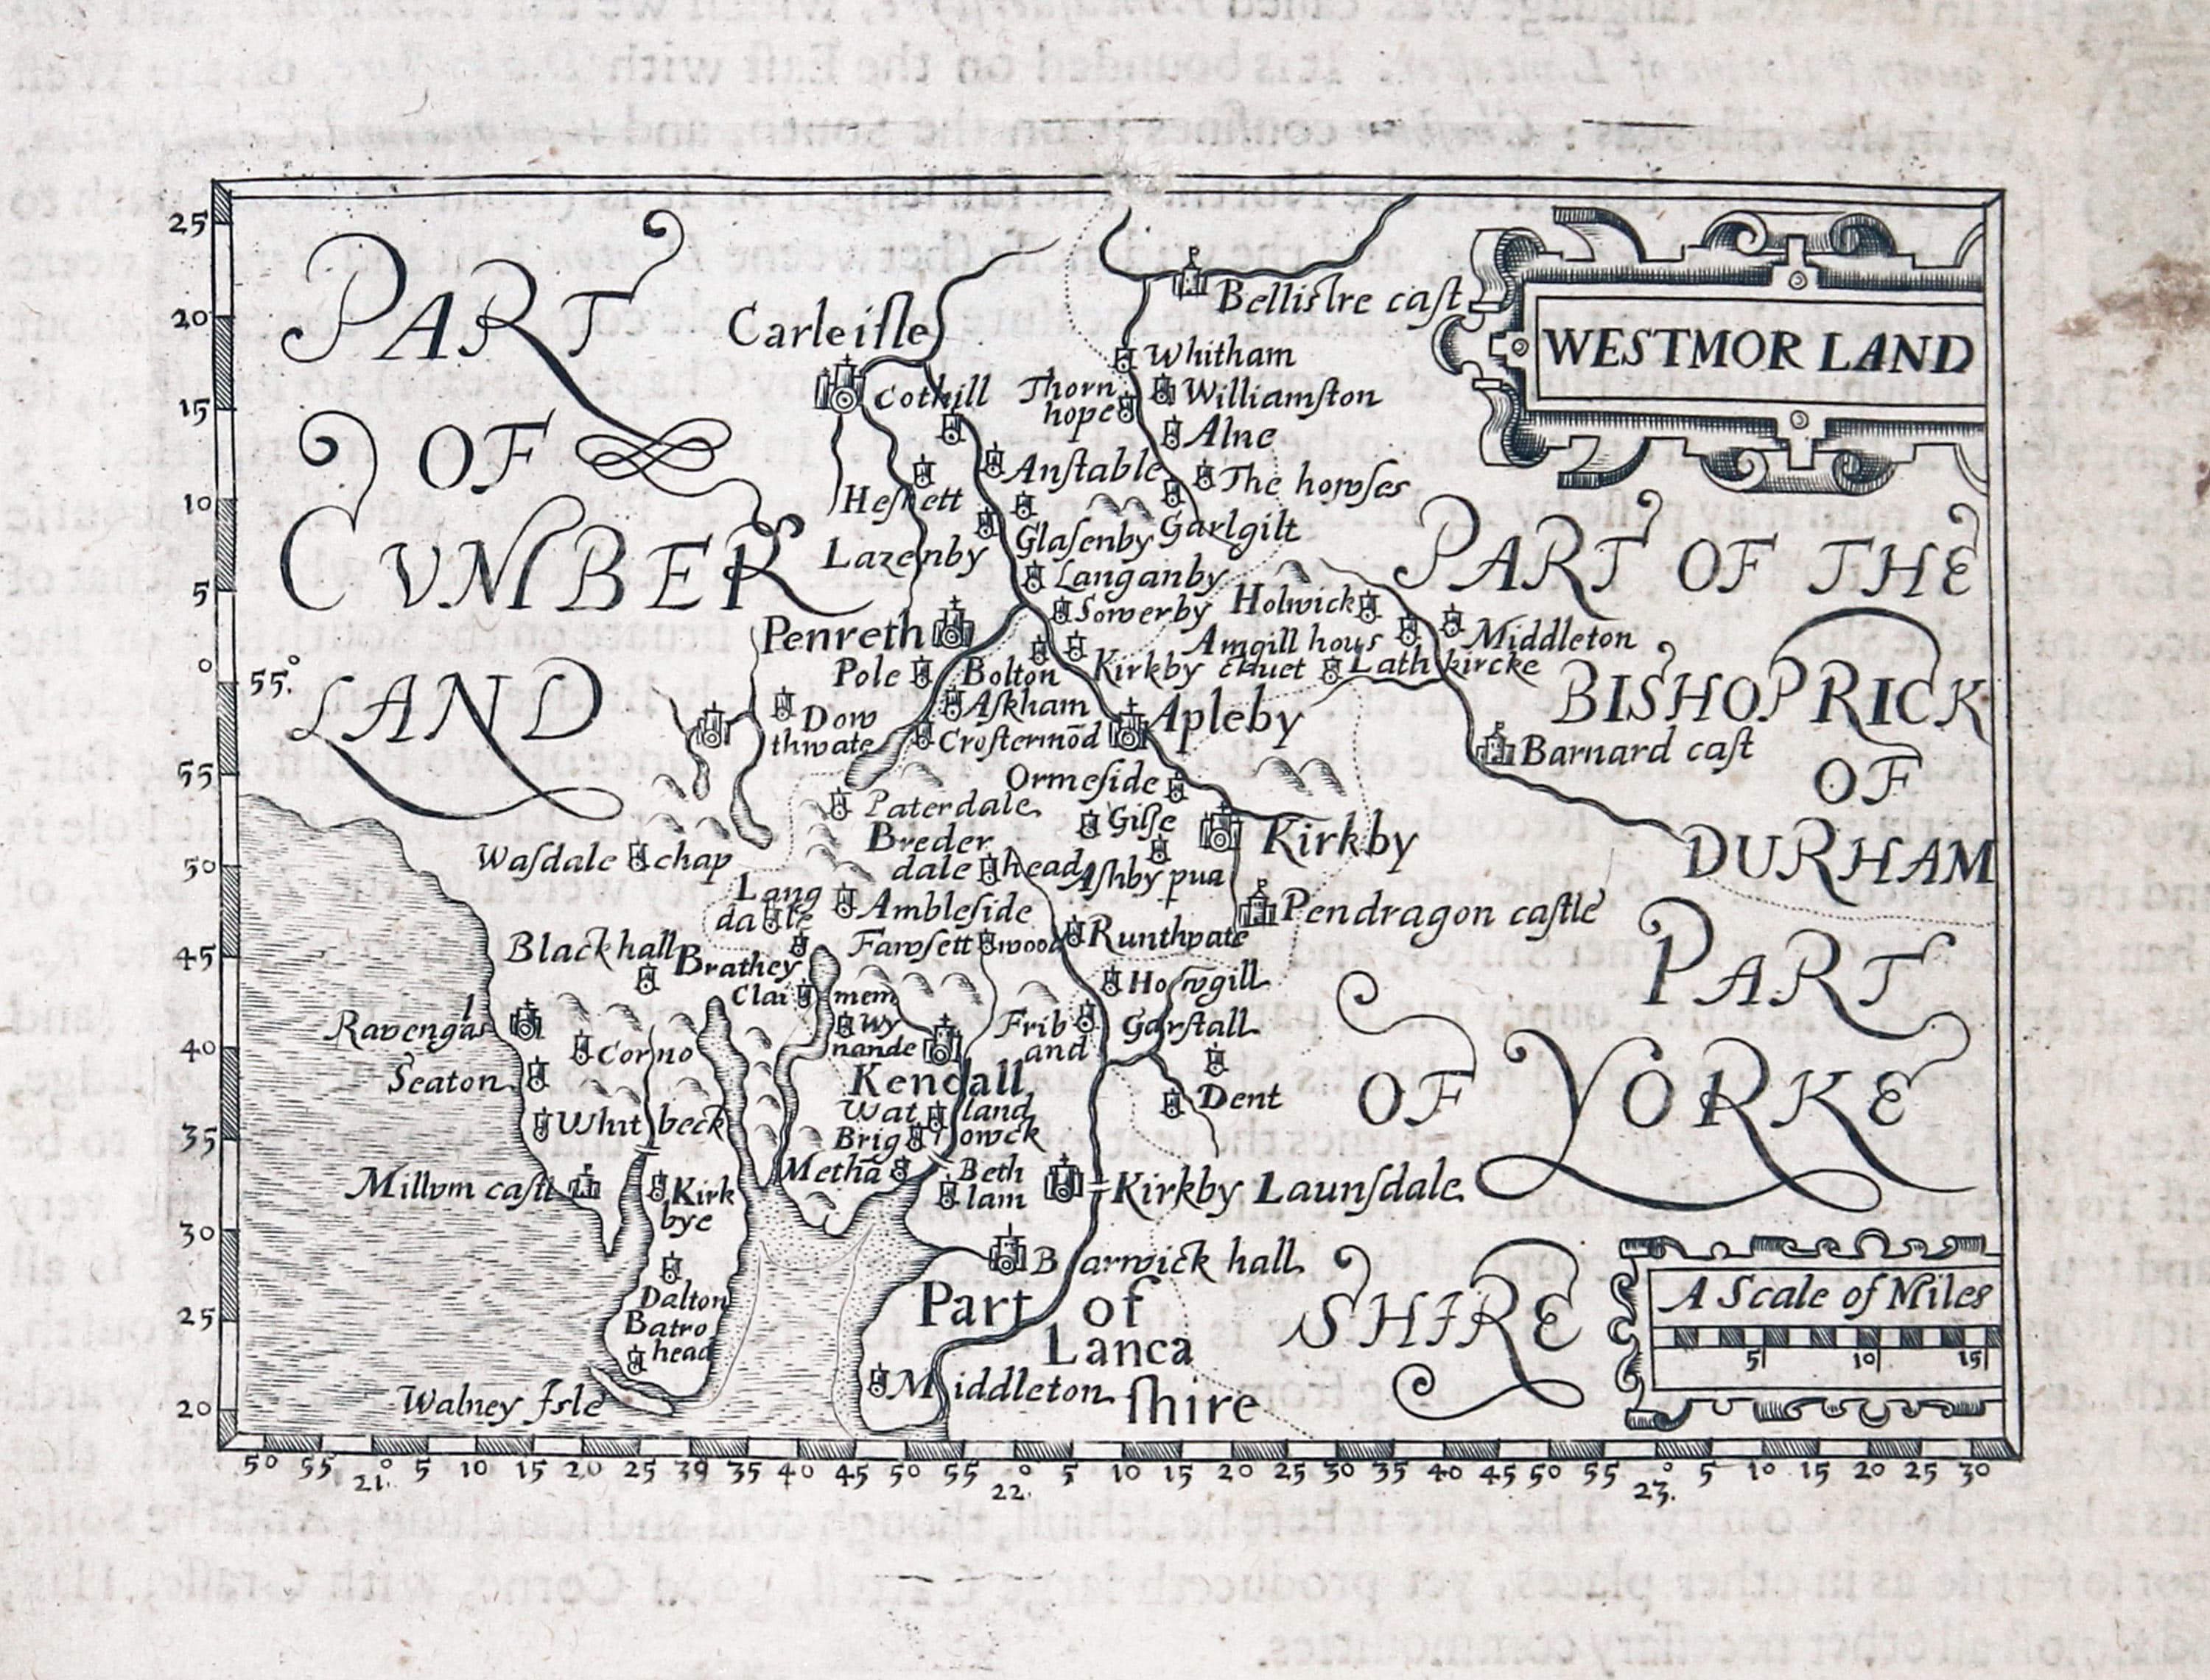 WESTMOR LAND
PART
OF
CVMBER
LAND
Carleiſle
Bellistre caſt
Cothill
Thorn
hope
Whitham
Williamſton
Alne
Anſtable
The howſes
Heſkett
Glaſenby
Garlgilt
Lazenby
Langanby
PART OF THE
BISHOPRICK
OF
DURHAM
Sowerby
Holwick
Penreth
Amgill hous
Middleton
Pole
Bolton
Kirkby
Lath kircke
Dow
thwate
Aſkham
Croſtermōd
Apleby
Barnard caſt
Ormeſide
Paterdale
Giſſe
Breder
dale head
Kirkby
Waſdale chap
Aſhby pua
Lang
dale
Ambleſide
Pendragon caſtle
Fawſett wood
Runthwate
Blackhall
Brathey
Howgill
Clai
mem
Ravenglas
Wy
nande
Frib
and
Garſtall
Corno
Seaton
Kendall
Dent
Whit beck
Wat land
Brig
Millvm caſtl
Metha
Beth
lam
Kirkby Launſdale
Kirk
bye
Barwick hall
Dalton
Batro
head
Walney Iſle
Middleton
Part of
Lanca
ſhire
PART
OF YORKE
SHIRE
A Scale of Miles
5 10 15
25
20
15
10
5
0
55°
55
50
45
40
35
30
25
20
50 55 0 5 10 15 20 25 39 35 40 45 50 55 0 5 10 15 20 25 30 35 40 45 50 55 0 5 10 15 20 25 30
21. 22. 23.